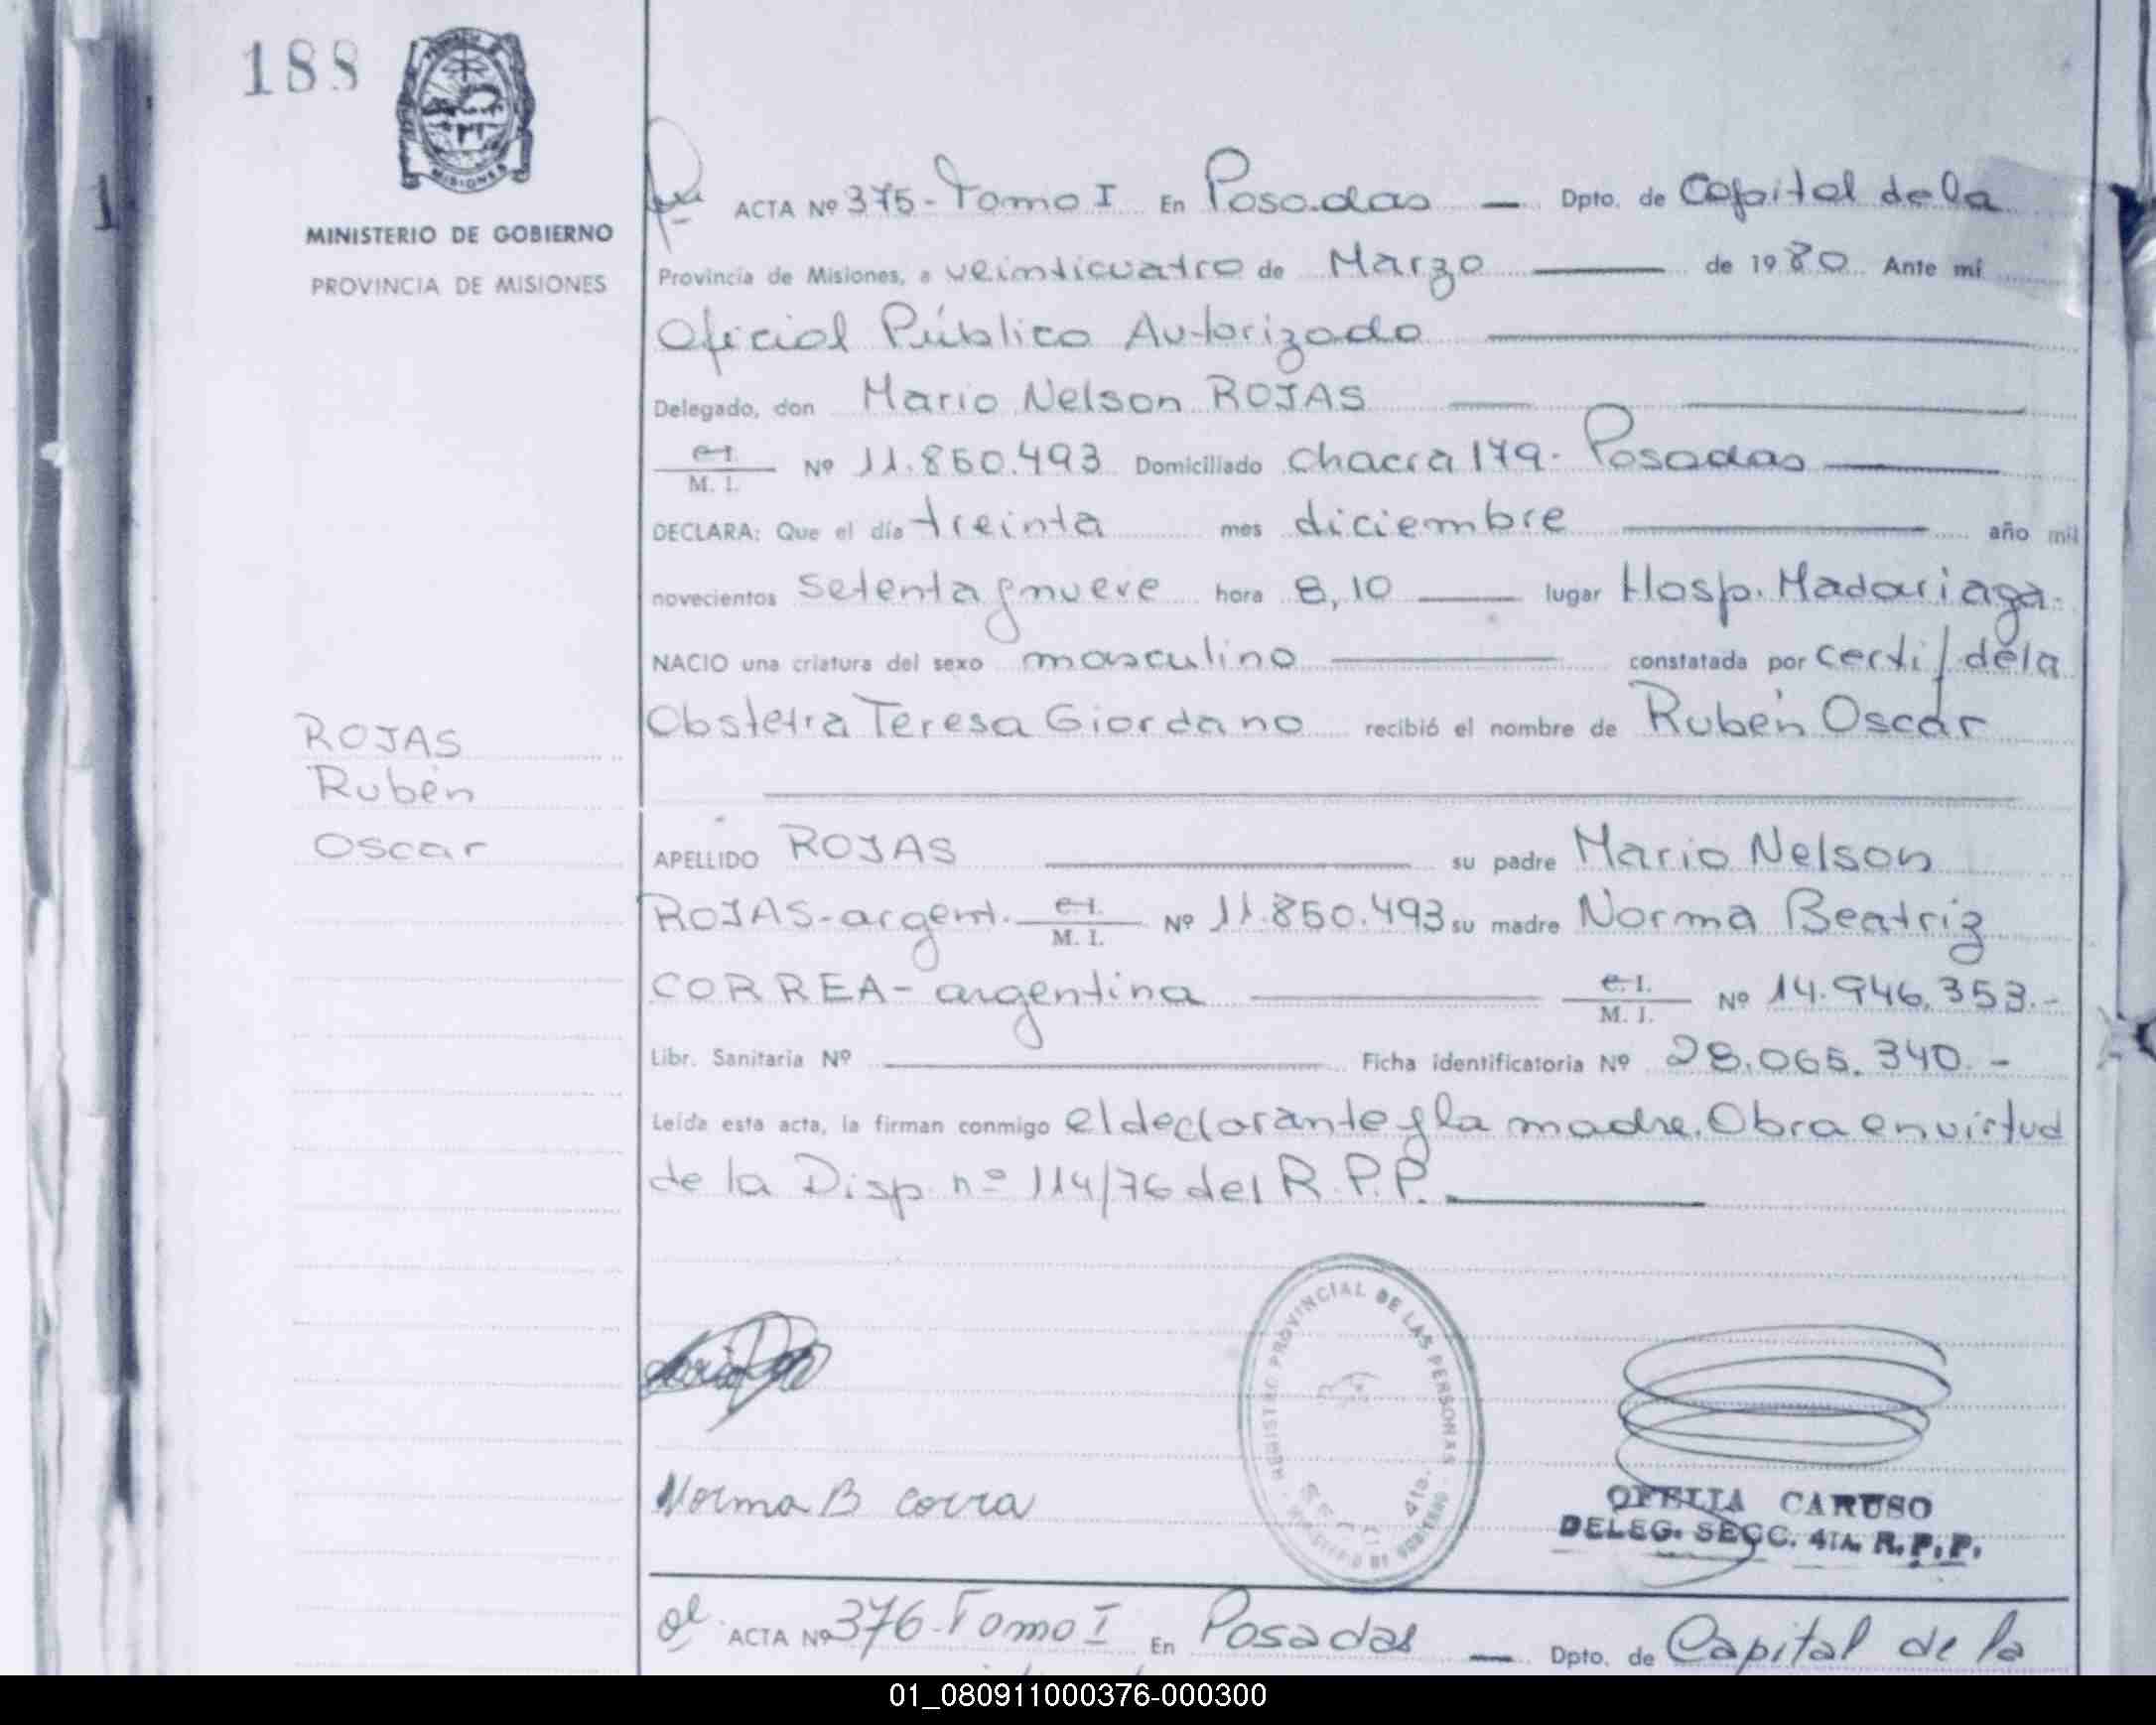 188
MISIONES
MINISTERIO DE GOBIERNO
PROVINCIA DE MISIONES
1
ACTA Nº 375-Tomo I En Posadas — Dpto. de Capital de la
Provincia de Misiones, a veinticuatro de Marzo — de 1980 Ante mí
Oficial Público Autorizado
Delegado, don Mario Nelson ROJAS
C.I. M. I. Nº 11.850.493 Domiciliado Chacra 179. Posadas
DECLARA: Que el día treinta mes diciembre año mil
novecientos setenta y nueve hora 8,10 — lugar Hosp. Madariaga.
NACIO una criatura del sexo masculino — constatada por certi/ dela
Obstetra Teresa Giordano recibió el nombre de Rubén Oscar
ROJAS
Rubén
Oscar
APELLIDO ROJAS — su padre Mario Nelson
ROJAS-argent. C.I. M. I. Nº 11.850.493 su madre Norma Beatriz
CORREA- argentina — C.I. M. I. Nº 14.946.353.-
Libr. Sanitaria Nº — Ficha identificatoria Nº 28.065.340.-
Leída esta acta, la firman conmigo el declarante y la madre. Obra en virtud
de la Disp. nº 114/76 del R.P.P.
REGISTRO PROVINCIAL DE LAS PERSONAS
SECC. 4ta.
MINISTERIO DE GOBIERNO
Norma B corra
OFELIA CARUSO
DELEG. SECC. 4TA. R.P.P.
ACTA Nº 376-Tomo I En Posadas — Dpto. de Capital de la
01_080911000376-000300